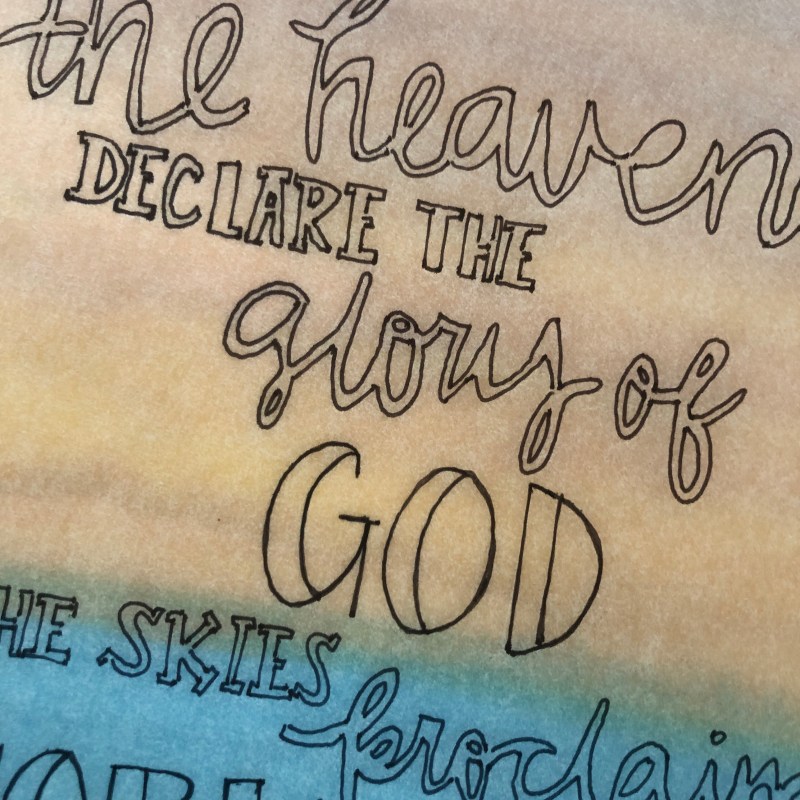 the heaven
DECLARE THE
glory of
GOD
HE SKIES
proclaim